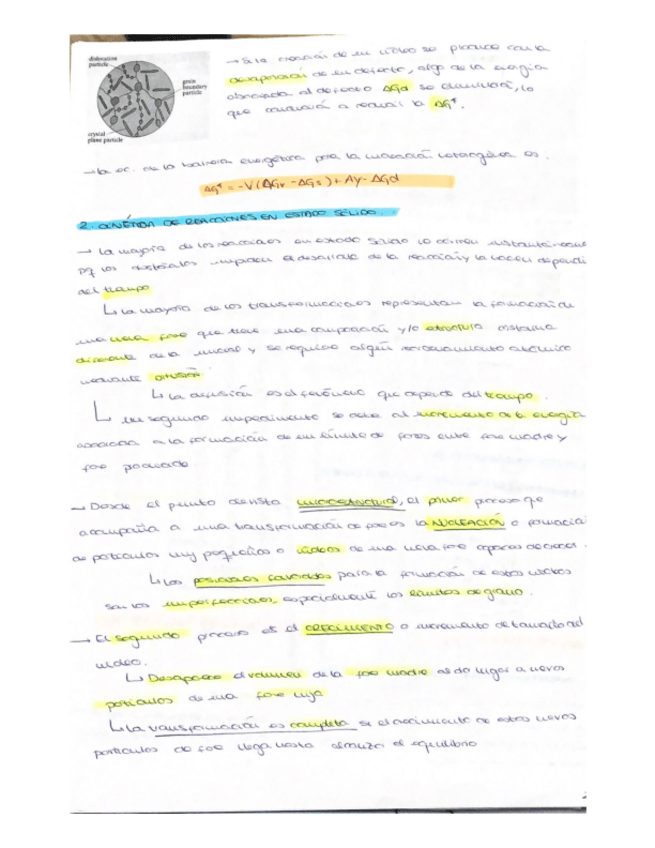 dislocation
particle
grain
boundary
particle
crystal
plane particle
→ Si la creación de un núcleo se produce con la
desaparición de un defecto, algo de la energía
almacenada al defecto ΔGd se eliminará, lo
que conducirá a reducir la ΔG*.
→ la ec. de la barrera energética para la nucleación heterogénea es.
ΔG* = -V(ΔGv - ΔGs) + Aγ - ΔGd
2. CINÉTICA DE REACCIONES EN ESTADO SÓLIDO.
→ La mayoría de las reacciones en estado sólido no ocurren
pq los obstáculos impiden el desarrollo de la reacción y la hacen
del tiempo
↳ la mayoría de las transformaciones representan la formación de
una nueva fase que tiene una composición y/o estructura cristalina
diferente de la inicial y se requiere algún reordenamiento atómico
mediante difusión.
↳ La difusión es el fenómeno que depende del tiempo.
↳ un segundo impedimento se debe al incremento de la energía
asociada a la formación de un límite de fases entre fase madre y
fase producto
→ Desde el punto de vista microestructural, el primer proceso que
acompaña a una transformación de fase es la NUCLEACIÓN o formación
de partículas muy pequeñas o núcleos de una nueva fase capaces de crecer.
↳ Las posiciones favorables para la formación de estos núcleos
son las imperfecciones, especialmente los límites de grano.
→ El segundo proceso es el CRECIMIENTO o incremento de tamaño del
núcleo.
↳ Desaparece el volumen de la fase madre al dar lugar a nuevas
partículas de una fase hija
↳ La transformación es completa si el crecimiento de estas nuevas
partículas de fase llega hasta alcanzar el equilibrio